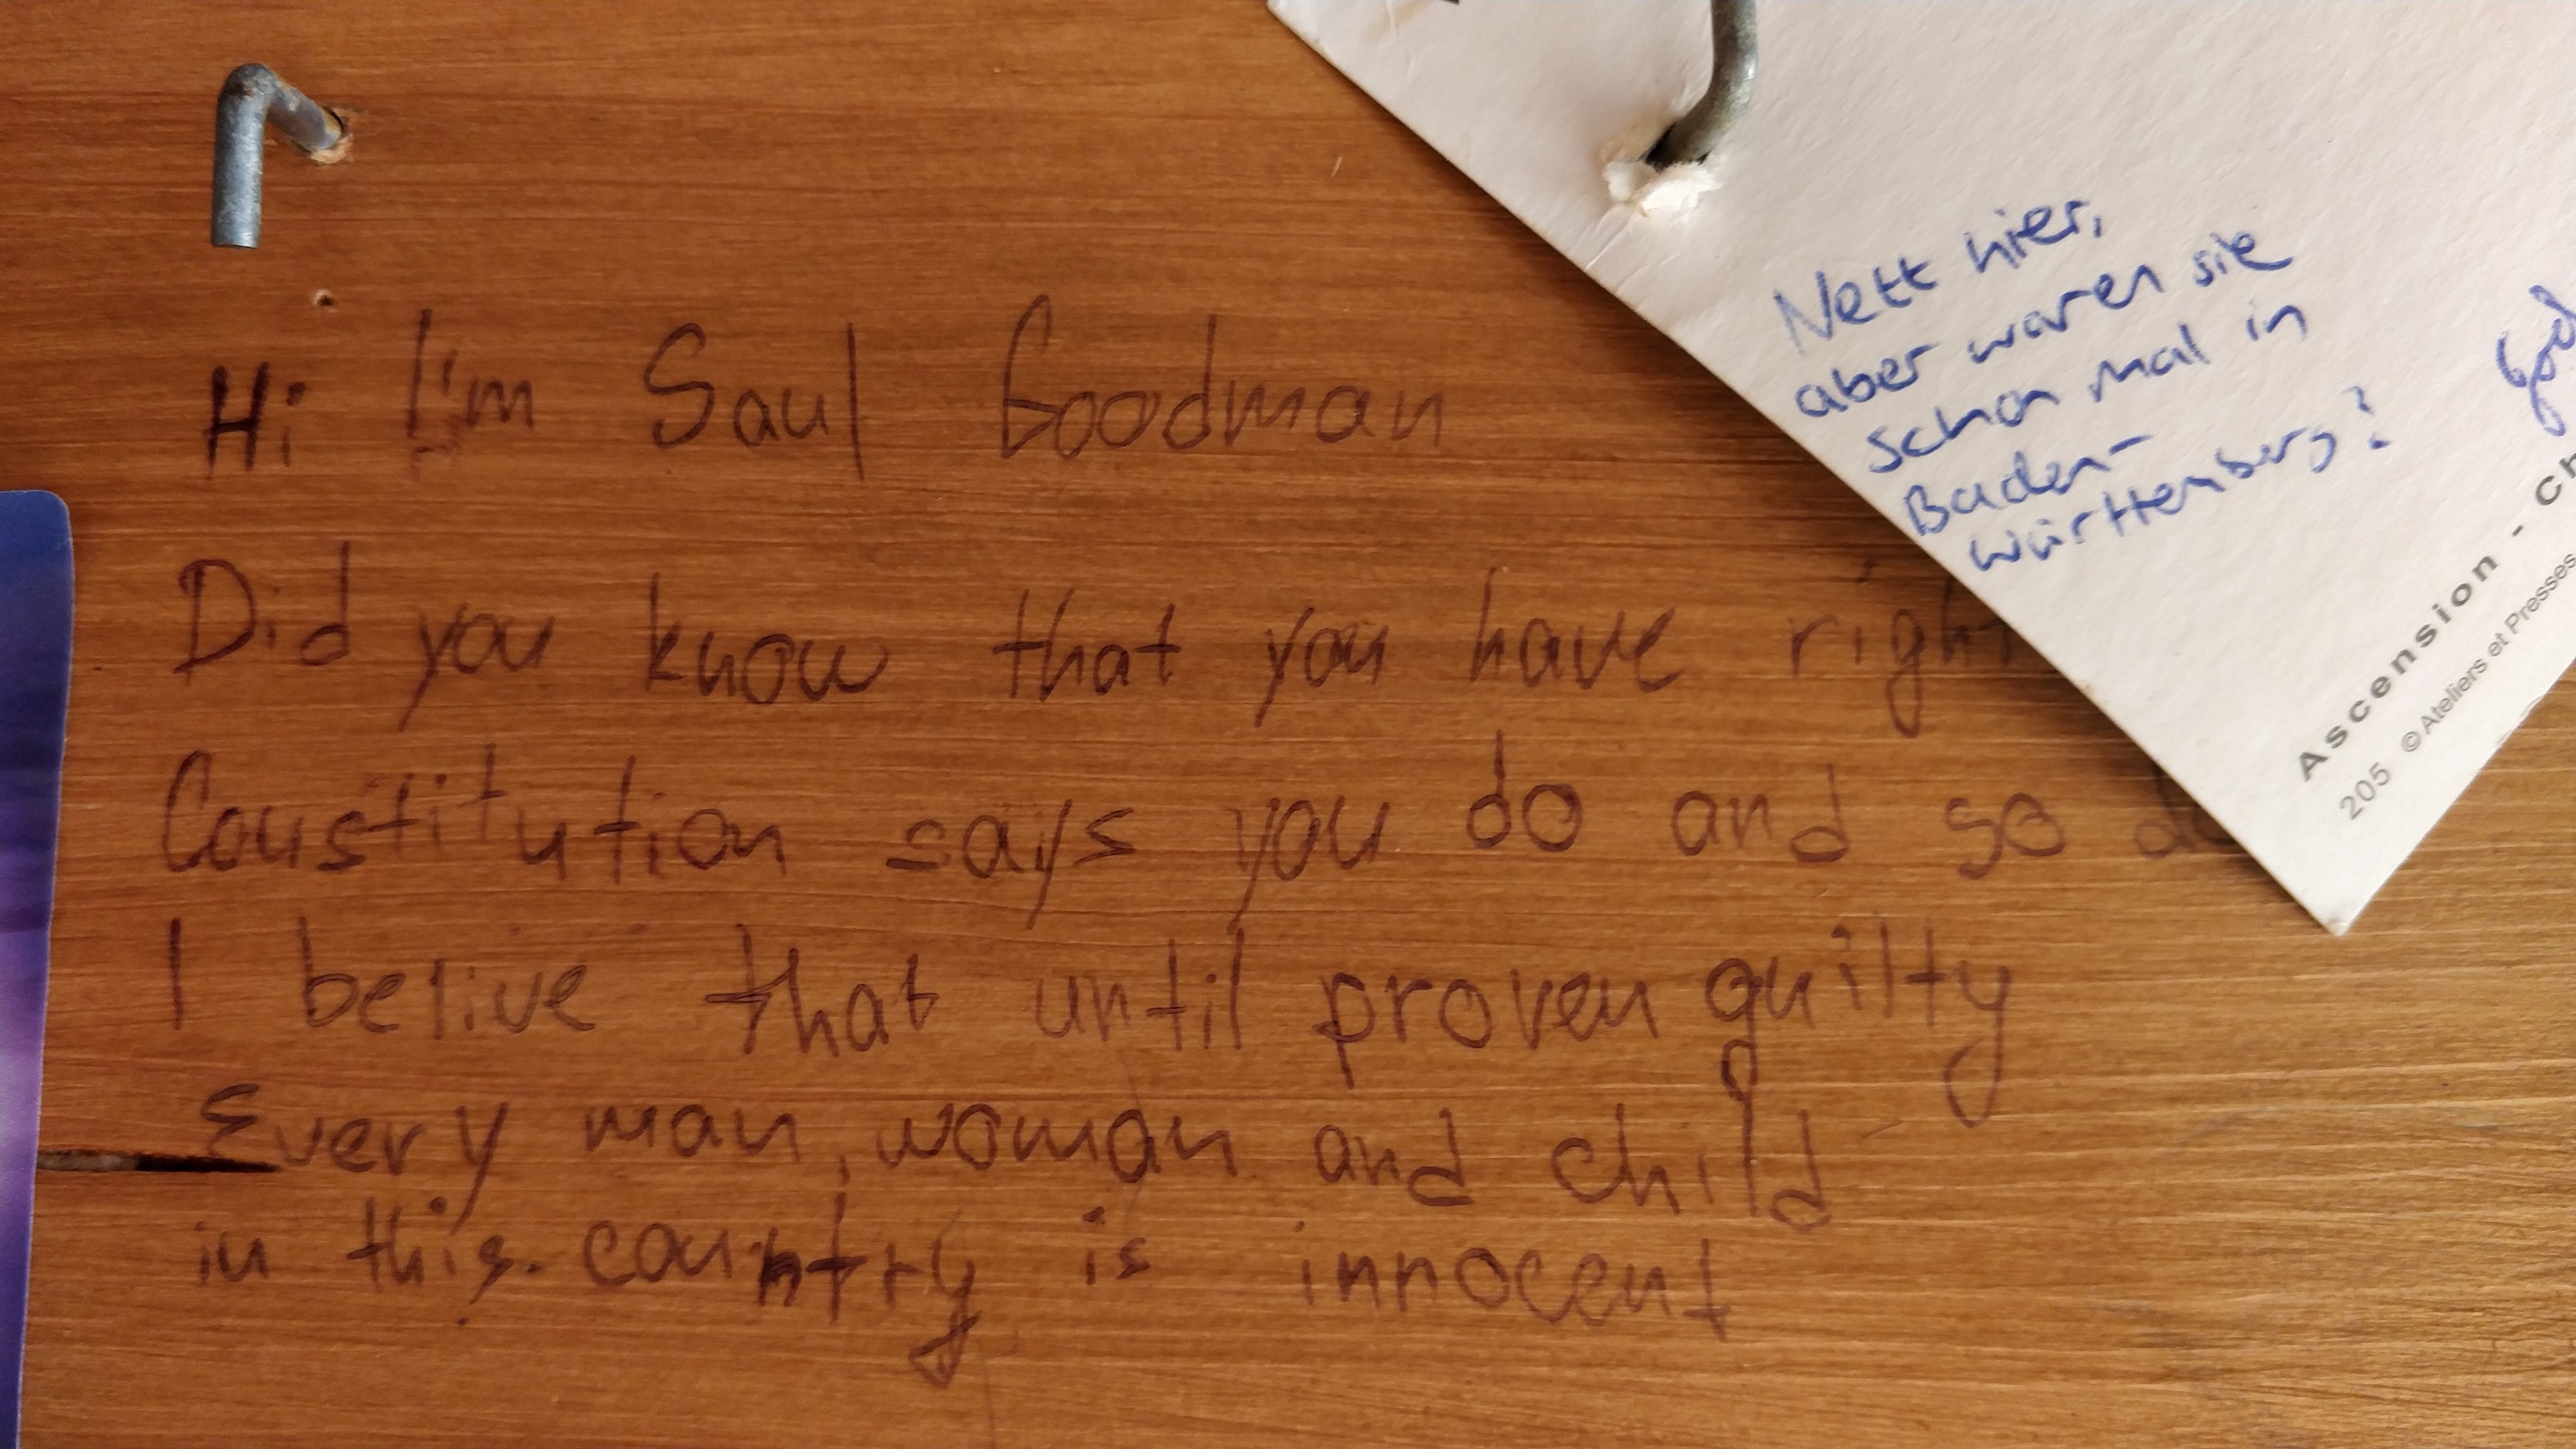 Hi I'm Saul Goodman
Did you know that you have righ
Constitution says you do and so do
I belive that until proven guilty
Every man, woman and child
in this. country is innocent
Nett hier,
aber waren sie
schon mal in
Baden-
württemberg?
God
Ascension - Ch
205 © Ateliers et Presses